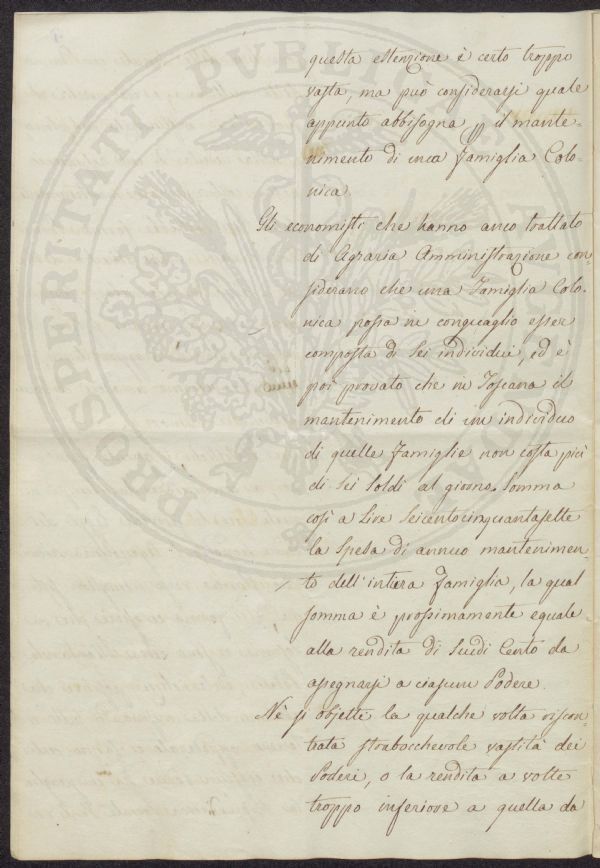 questa estenzione è certo troppo
vasta, ma può considerarsi quale
appunto abbisogna p il mante-
nimento di una Famiglia Colo-
nica
Gli economisti che hanno anco trattato
di Agraria Amministrazione con-
siderano che una Famiglia Colo-
nica possa in conguaglio esser
composta di sei individui, ed è
poi provato che in Toscana il
mantenimento di un individuo
di quelle Famiglie non costa più
di sei soldi al giorno. Somma
così a Lire Seicentocinquantasette
la spesa di annuo mantenimen-
to dell'intiera Famiglia, la qual
somma è prossimamente eguale
alla rendita di Scudi Cento da
assegnarsi a ciascun Podere.
Nè si objette la qualche volta riscon-
trata strabocchevole vastità dei
Poderi, o la rendita a volte
troppo inferiore a quella da
PROSPERITATI PUBLICAE AUGENDAE